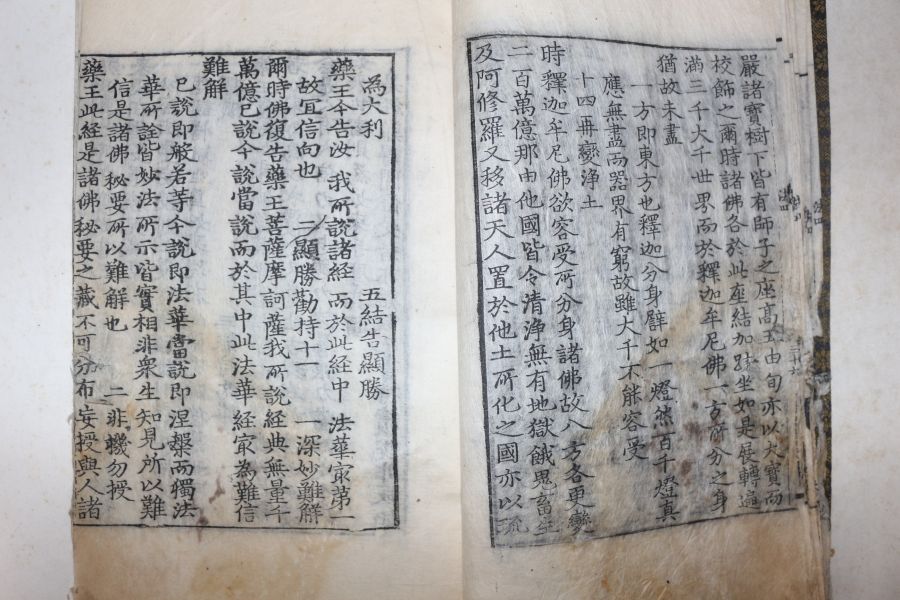 嚴諸寶樹下皆有師子之座高五由旬亦以大寶而
校飾之爾時諸佛各於此座結加趺坐如是展轉遍
滿三千大千世界而於釋迦牟尼佛一方所分之身
猶故未盡
一方即東方也釋迦分身譬如一燈然百千燈真
應無盡而器界有窮故雖大千不能容受
十四再變淨土
時釋迦牟尼佛欲容受所分身諸佛故八方各更變
二百萬億那由他國皆令清淨無有地獄餓鬼畜生
及阿修羅又移諸天人置於他土所化之國亦以琉
為大利 五結告顯勝
藥王今告汝 我所說諸經 而於此經中 法華㝡第一
故宜信向也 二顯勝勸持十一 一深妙難解
爾時佛復告藥王菩薩摩訶薩我所說經典無量千
萬億已說今說當說而於其中此法華經㝡為難信
難解
已說即般若等今說即法華當說即涅槃而獨法
華所詮皆妙法所示皆實相非衆生知見所以難
信是諸佛秘要所以難解也 二非機勿授
藥王此經是諸佛秘要之藏不可分布妄授與人諸